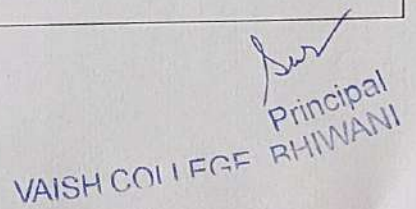 Principal
VAISH COLLEGE BHIWANI